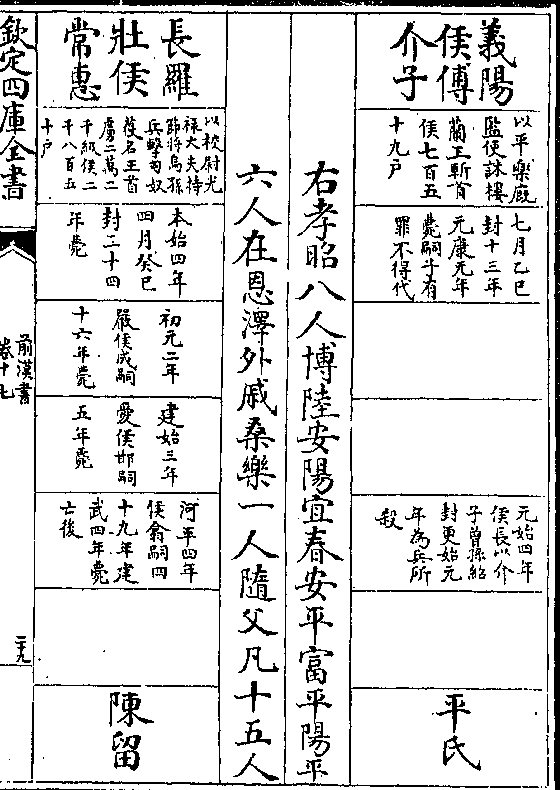 義陽
侯傅
介子
以平樂廐
監使誅樓
蘭王斬首
侯七百五
十九戶
七月乙巳
封十三年
元康元年
薨嗣子有
罪不得代
元始四年
侯長以介
子曾孫紹
封更始元
年為兵所
殺
平氏
右孝昭八人博陸安陽宜春安平富平陽平
六人在恩澤外戚桑樂一人隨父凡十五人
長羅
壯侯
常惠
以校尉光
祿大夫持
節將烏孫
兵擊匈奴
獲名王首
虜三萬二
千級侯二
千八百五
十戶
本始四年
四月癸巳
封二十四
年薨
初元二年
嚴侯成嗣
十六年薨
建始三年
愛侯邯嗣
五年薨
河平四年
侯翕嗣四
十九年建
武四年薨
亡後
陳留
欽定四庫全書
前漢書
卷十七